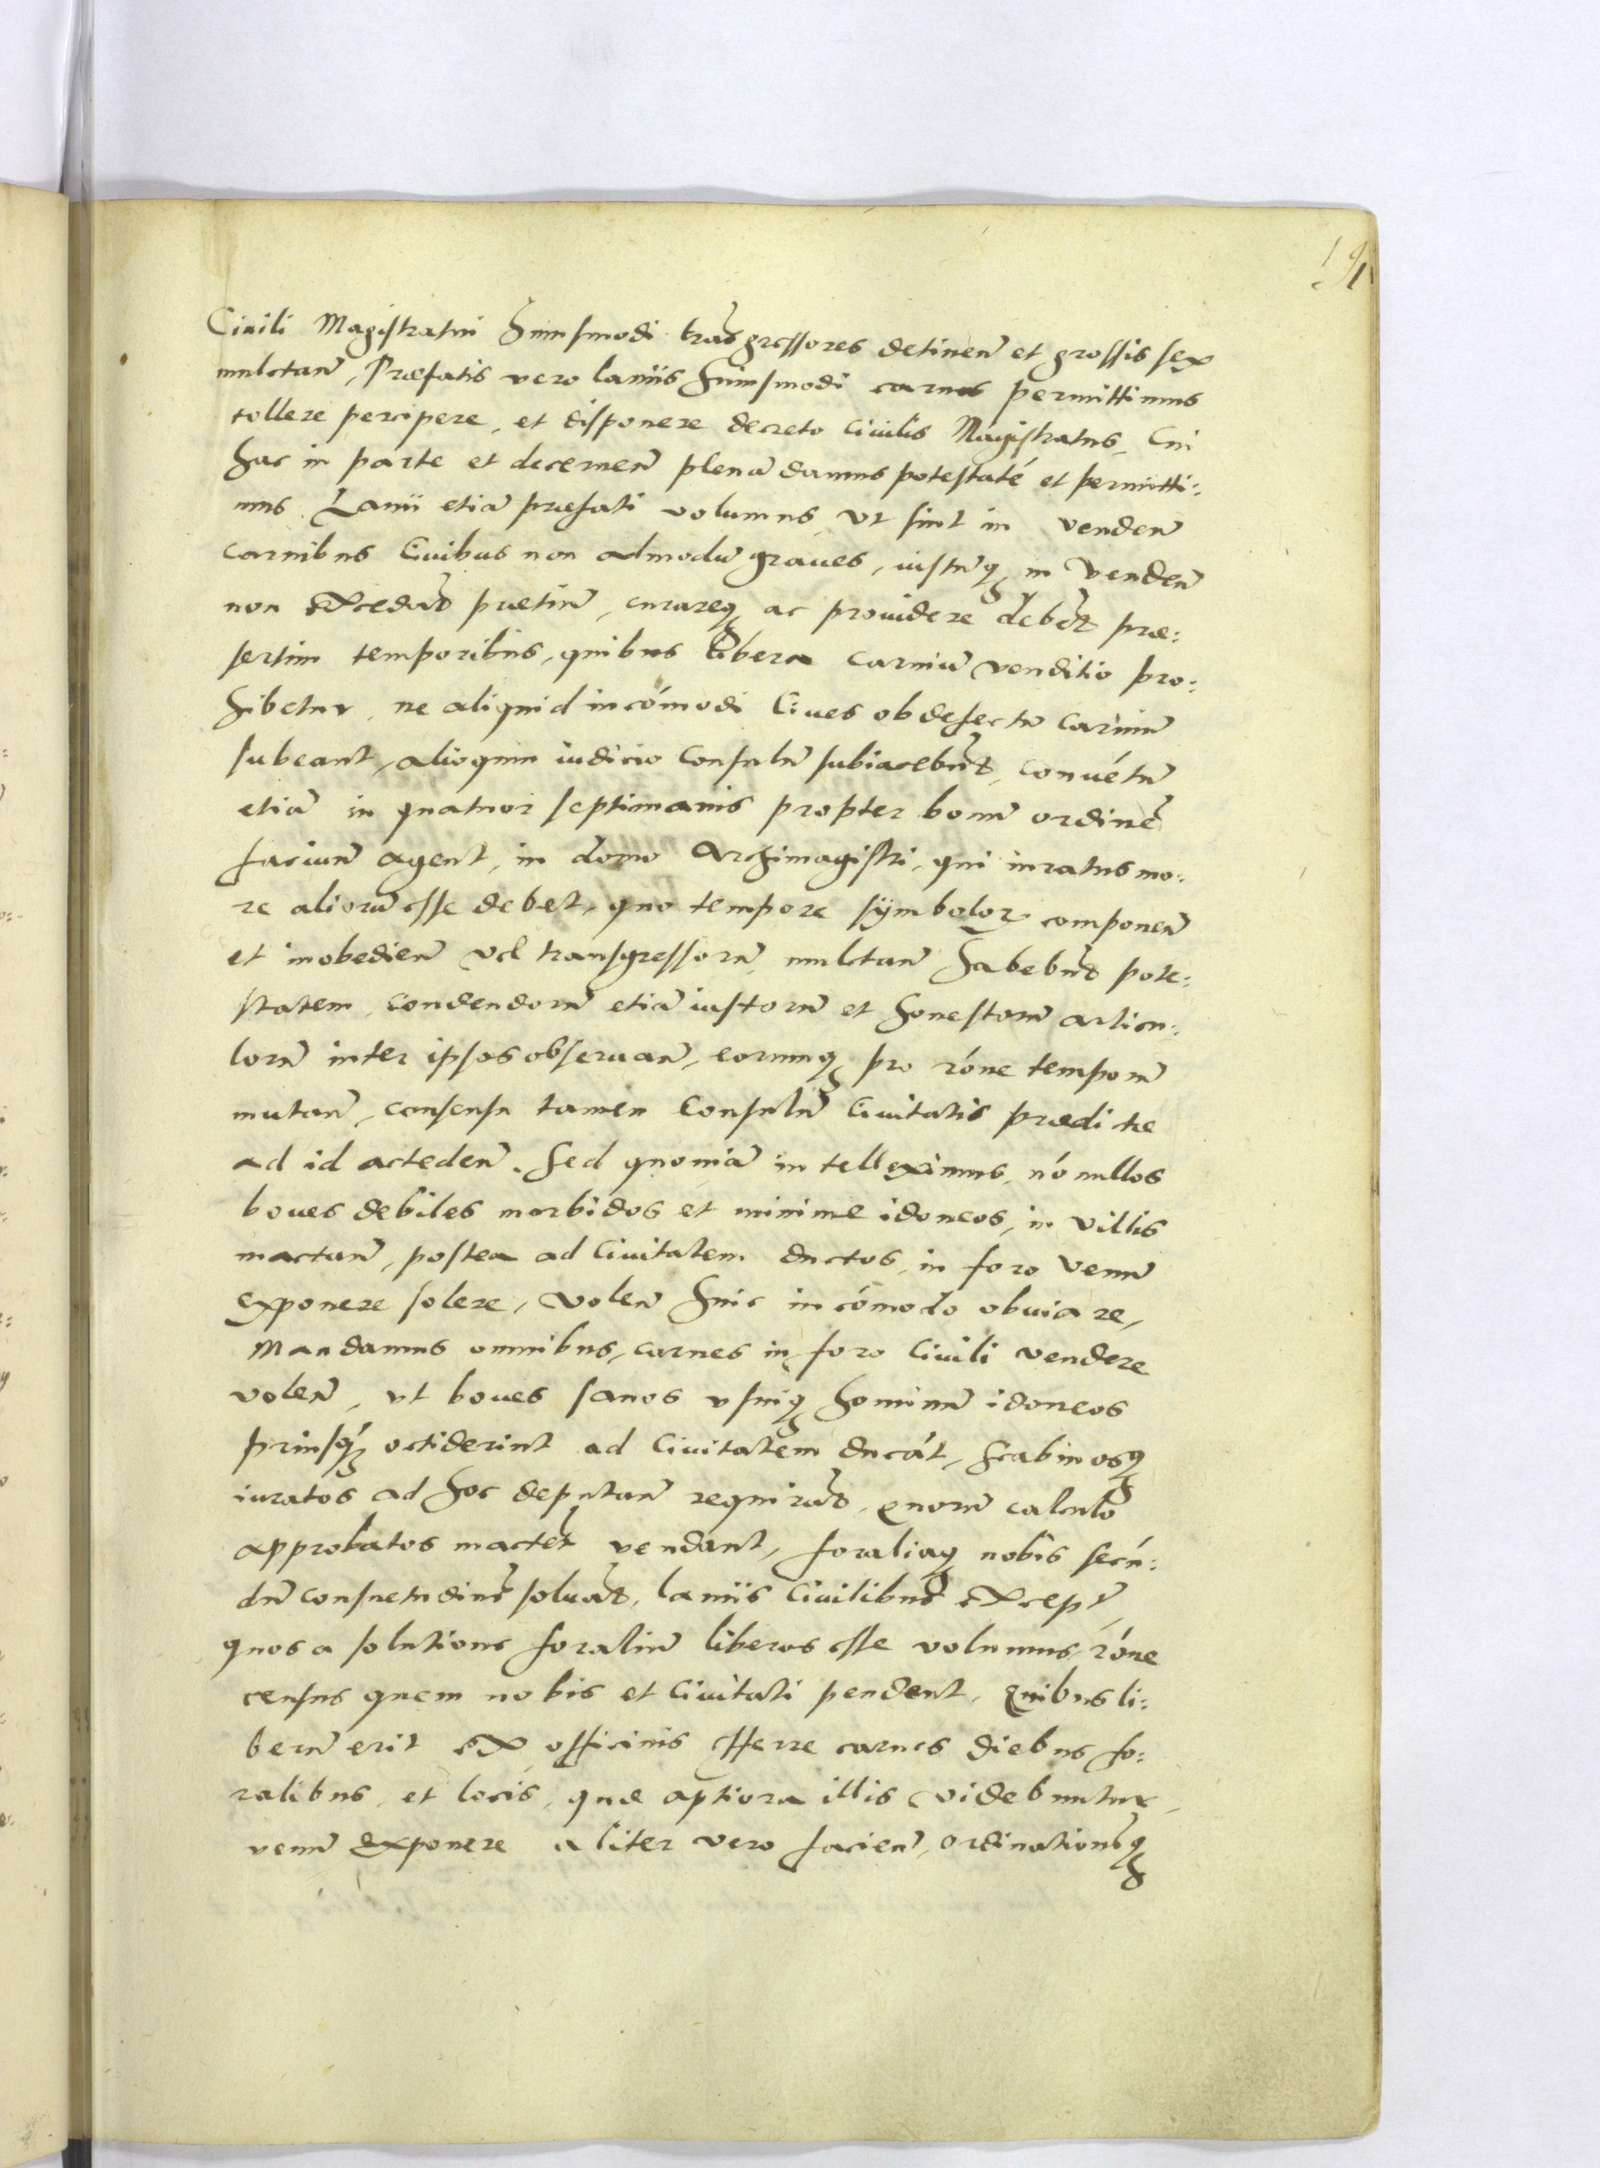 191
Ciuili Magistratui huiusmodi trãsgressores detineñ et grossis sex
mulctañ, Præfatis vero laniis huiusmodi carnes permittimus
tollere percipere, et disponere decreto Ciuilis Magistratus, Cui
hac in parte et decerneñ plenã damus potestatẽ et permitti:
mus. Lanii etiã præfati volumus vt sint in vendeñ
carnibus Ciuibus non admodũ graues, iustũq́ in vendeñ
non excedãt prætiũ, curareq́ ac prouidere debẽt præ:
sertim temporibus, quibus libera carniũ venditio pro:
hibetur, ne aliquid incõmodi Ciues ob defectũ carniũ
subeant, alioquin iudicio Consulũ subiacebũt, conuẽtũ
etiã in quatuor septimanis propter bonũ ordinẽ
faciunñ agent, in domo Archimagistri, qui iuratus mo:
re aliorũ esse debet, quo tempore symbolorꝫ componeñ
et inobedieñ vel transgressorũ mulctañ habebũt pote:
statem, condendorũ etiã iustorũ et honestorũ articu:
lorũ inter ipsos obseruañ, eorumq́ pro rõne temporũ
mutañ, consensu tamen Consulũ Ciuitatis prædictæ
ad id accedeñ. Sed quoniã intelleximus, nõnullos
boues debiles morbidos et minime idoneos, in villis
mactañ, postea ad Ciuitatem ductos, in foro venũ
exponere solere, voleñ huic incõmodo obuiare,
Mandamus omnibus, carnes in foro Ciuili vendere
voleñ, vt boues sanos vsuiq́ hominũ idoneos
priusq́ꝫ occiderint ad Ciuitatem ducãt, Scabinosq́
iuratos ad hoc deputañ requirãt, quorũ calculo
approbatos mactẽt vendant, foraliaq́ nobis secũ:
dũ consuetudinẽ soluãt, laniis Ciuilibus except̃,
quos a solutione foraliũ liberos esse volumus, rõne
census quem nobis et Ciuitati pendent, Quibus li:
berũ erit ex officinis efferre carnes diebus fo:
ralibus, et locis, quæ aptiora illis videbuntur,
venũ exponere aliter vero facieñ, ordinationẽq́